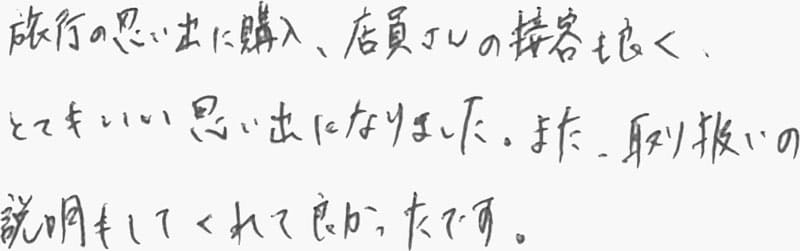 旅行の思い出に購入、店員さんの接客も良く、
とてもいい思い出になりました。また、取り扱いの
説明もしてくれて良かったです。